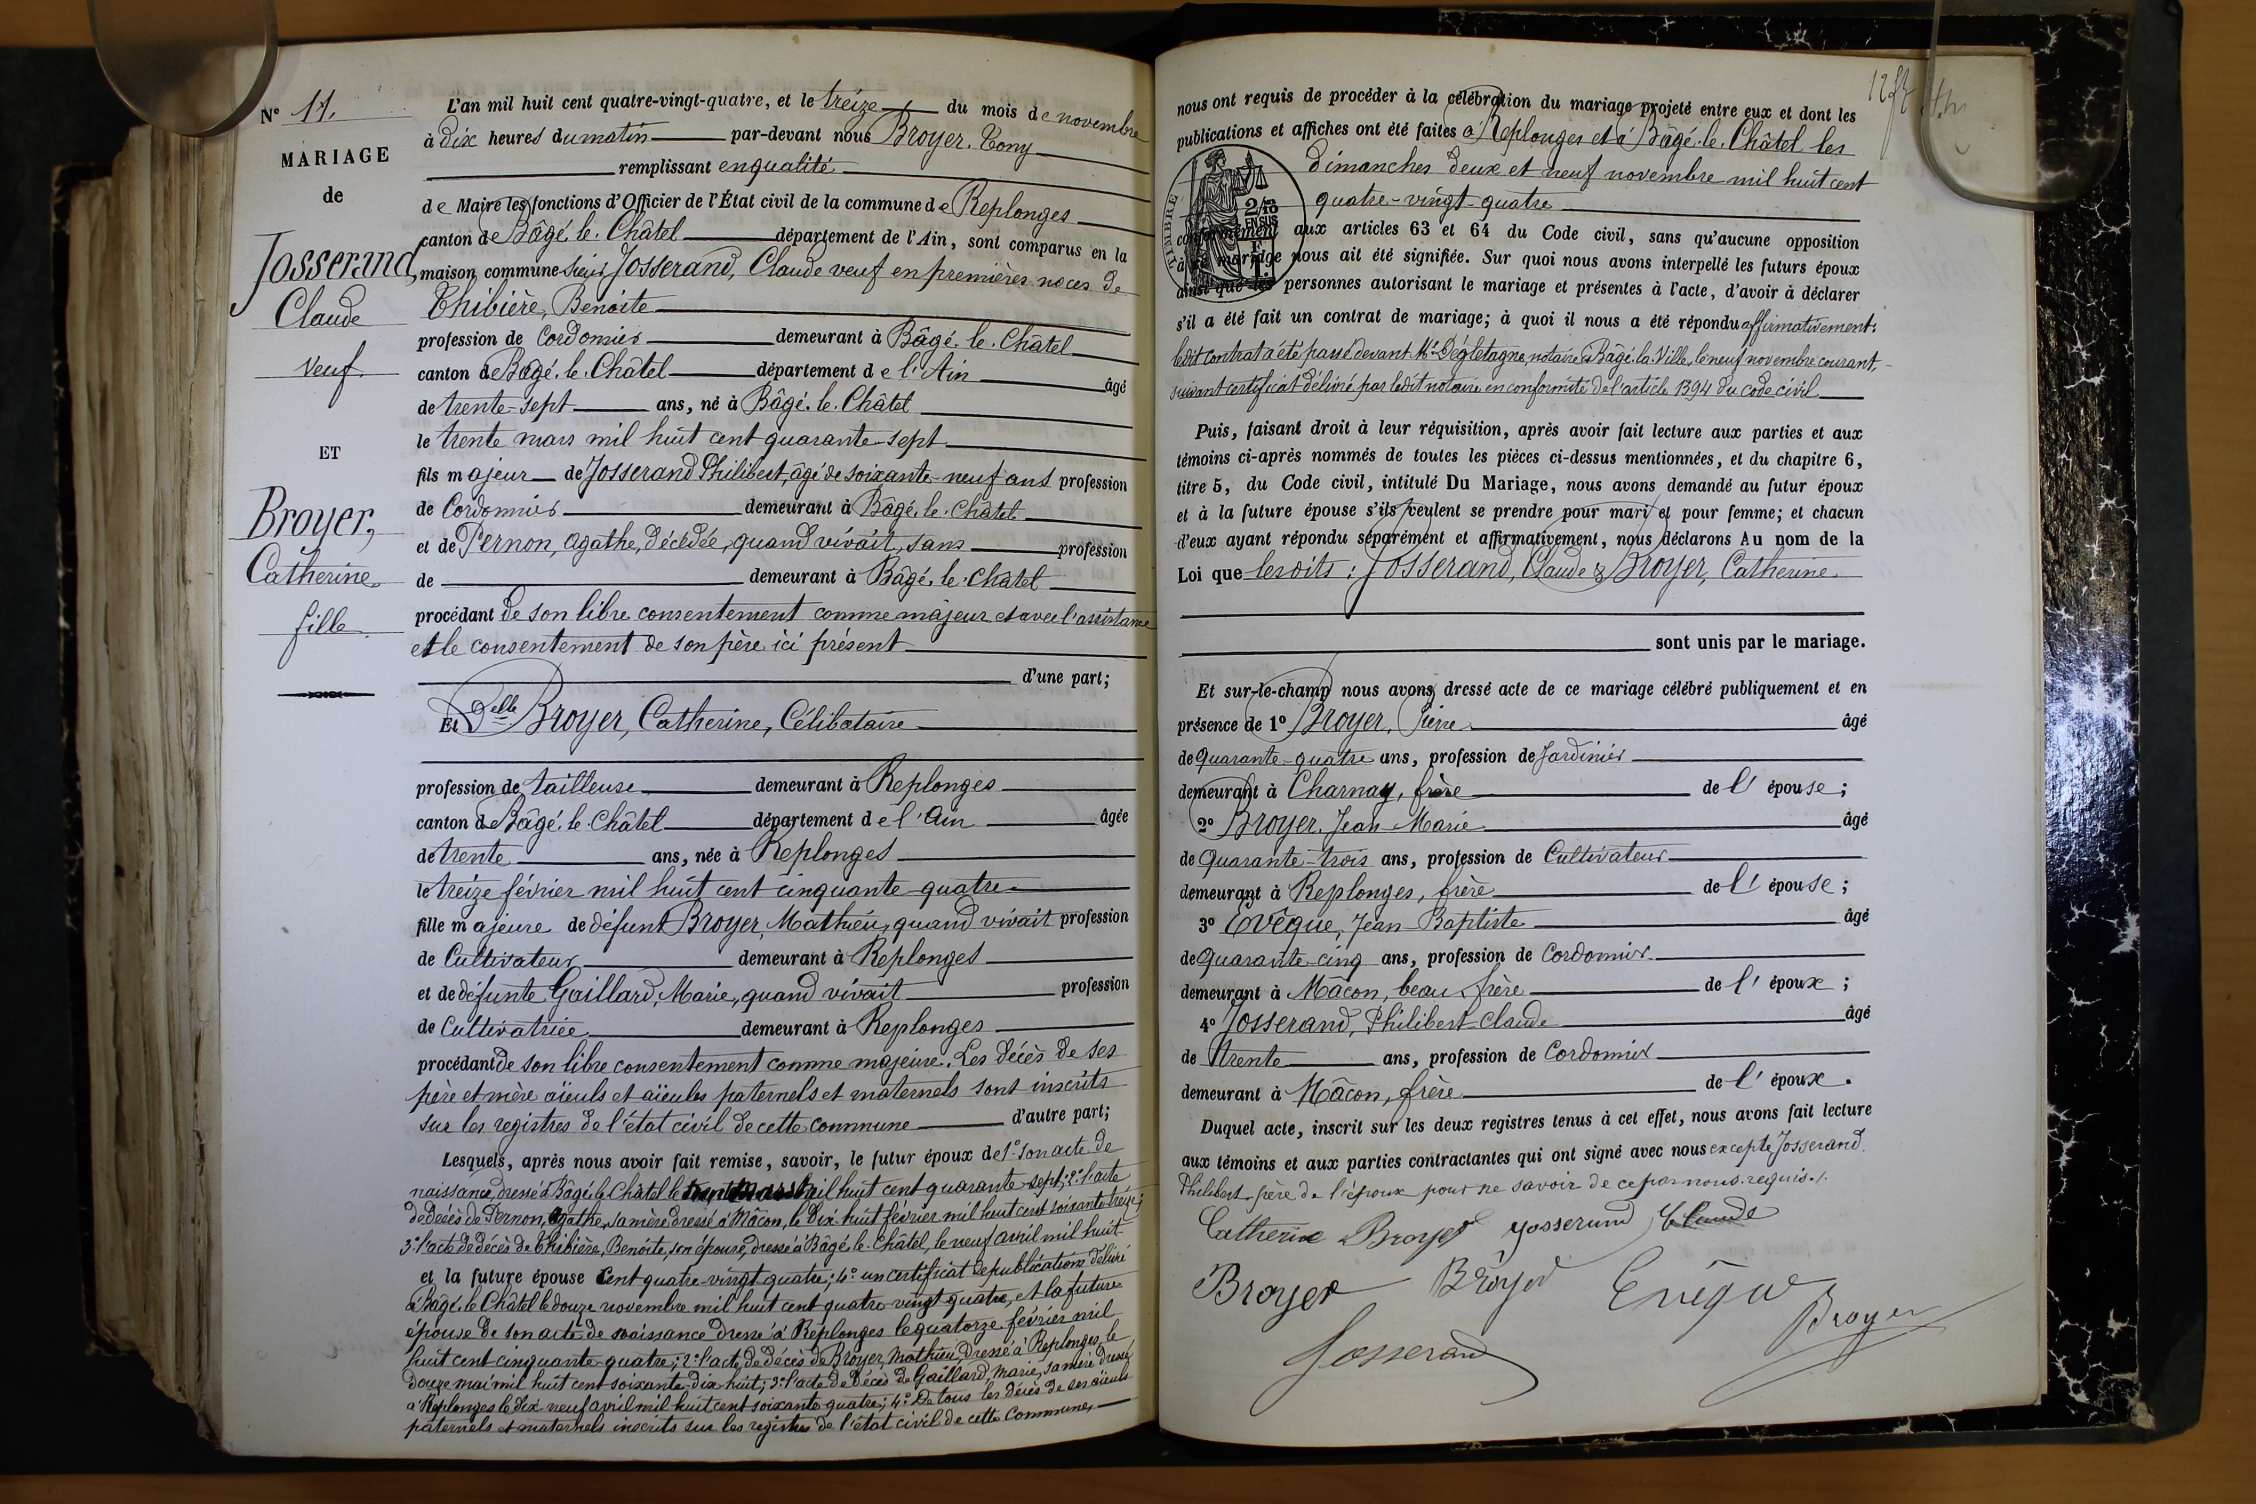 N° 11.
MARIAGE
de
Josserand,
Claude
Veuf.
ET
Broyer,
Catherine
fille
L'an mil huit cent quatre-vingt-quatre, et le treize du mois de novembre
à dix heures du matin par-devant nous Broyer, Tony
remplissant en qualité
de Maire les fonctions d'Officier de l'État civil de la commune de Replonges
canton de Bâgé-le-Châtel département de l'Ain, sont comparus en la
maison commune Sieur Josserand, Claude veuf en premières noces de
Thibière, Benoite
profession de Cordonnier demeurant à Bâgé-le-Châtel
canton de Bâgé-le-Châtel département de l'Ain âgé
de trente-sept ans, né à Bâgé-le-Châtel
le trente mars mil huit cent quarante-sept
fils majeur de Josserand Philibert, âgé de soixante-neuf ans profession
de Cordonnier demeurant à Bâgé-le-Châtel
et de Pernon, Agathe, décédée, quand vivait, sans profession
de demeurant à Bâgé-le-Châtel
procédant de son libre consentement comme majeur et avec l'assistance
et le consentement de son père ici présent
d'une part;
Et Delle Broyer, Catherine, Célibataire
profession de tailleuse demeurant à Replonges
canton de Bâgé-le-Châtel département de l'Ain âgée
de trente ans, née à Replonges
le treize février mil huit cent cinquante-quatre
fille majeure de défunt Broyer, Mathieu, quand vivait profession
de Cultivateur demeurant à Replonges
et de défunte Gaillard, Marie, quand vivait profession
de Cultivatrice demeurant à Replonges
procédant de son libre consentement comme majeure. Les décès de ses
père et mère aïeuls et aïeules paternels et maternels sont inscrits
sur les registres de l'état civil de cette commune d'autre part;
Lesquels, après nous avoir fait remise, savoir, le futur époux de 1° son acte de
naissance, dressé à Bâgé-le-Châtel le mil huit cent quarante-sept; 2° l'acte
de décès de Pernon, Agathe, sa mère dressé à Mâcon, le dix-huit février mil huit cent soixante-treize;
3° l'acte de décès de Thibière, Benoite, son épouse, dressé à Bâgé-le-Châtel, le neuf avril mil huit
et la future épouse cent quatre-vingt-quatre; 4° un certificat de publications délivré
à Bâgé-le-Châtel le douze novembre mil huit cent quatre-vingt-quatre, et la future
épouse de son acte de naissance dressé à Replonges le quatorze février mil
huit cent cinquante-quatre; 2° l'acte de décès de Broyer, Mathieu, dressé à Replonges, le
douze mai mil huit cent soixante-dix-huit; 3° l'acte de décès de Gaillard, Marie, sa mère dressé
à Replonges le dix-neuf avril mil huit cent soixante-quatre; 4° De tous les décès de ses aïeuls
paternels et maternels inscrits sur les registres de l'état civil de cette Commune,
nous ont requis de procéder à la célébration du mariage projeté entre eux et dont les
publications et affiches ont été faites à Replonges et à Bâgé-le-Châtel les
dimanches deux et neuf novembre mil huit cent
quatre-vingt-quatre
TIMBRE
2/10
EN SUS
conformément aux articles 63 et 64 du Code civil, sans qu'aucune opposition
à ce mariage nous ait été signifiée. Sur quoi nous avons interpellé les futurs époux
ainsi que les personnes autorisant le mariage et présentes à l'acte, d'avoir à déclarer
s'il a été fait un contrat de mariage; à quoi il nous a été répondu affirmativement:
ledit contrat a été passé devant Me Dégletagne, notaire à Bâgé-la-Ville, le neuf novembre courant,
suivant certificat délivré par ledit notaire en conformité de l'article 1394 du code civil
Puis, faisant droit à leur réquisition, après avoir fait lecture aux parties et aux
témoins ci-après nommés de toutes les pièces ci-dessus mentionnées, et du chapitre 6,
titre 5, du Code civil, intitulé Du Mariage, nous avons demandé au futur époux
et à la future épouse s'ils veulent se prendre pour mari et pour femme; et chacun
d'eux ayant répondu séparément et affirmativement, nous déclarons Au nom de la
Loi que lesdits: Josserand, Claude & Broyer, Catherine
sont unis par le mariage.
Et sur-le-champ nous avons dressé acte de ce mariage célébré publiquement et en
présence de 1° Broyer, Pierre âgé
de Quarante-quatre ans, profession de Jardinier
demeurant à Charnay, frère de l'épouse;
2° Broyer, Jean-Marie âgé
de Quarante-trois ans, profession de Cultivateur
demeurant à Replonges, frère de l'épouse;
3° Evêque, Jean-Baptiste âgé
de Quarante-cinq ans, profession de Cordonnier
demeurant à Mâcon, beau-frère de l'époux;
4° Josserand, Philibert-Claude âgé
de trente ans, profession de Cordonnier
demeurant à Mâcon, frère de l'époux.
Duquel acte, inscrit sur les deux registres tenus à cet effet, nous avons fait lecture
aux témoins et aux parties contractantes qui ont signé avec nous excepté Josserand
Philibert père de l'époux pour ne savoir de ce par nous requis./.
Catherine Broyer Josserand Claude
Broyer Broyer Evêque
Broyer
Josserand